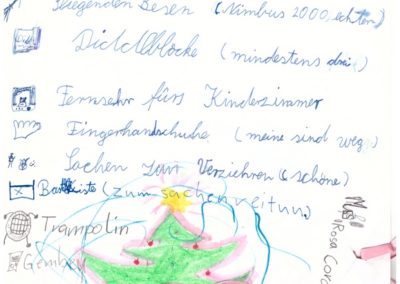 fliegenden Besen (Nimbus 2000, echten)
Dicke Blöcke (mindestens drei)
Fernsehr fürs Kinderzimmer
Fingerhandschuhe (meine sind weg)
Sachen zum Verziehren (schöne)
(zum sachen
Trampolin
Rosa